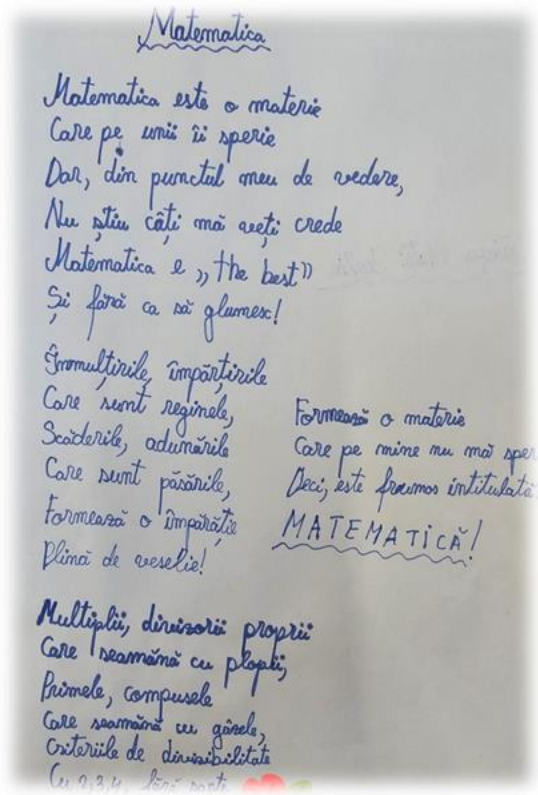 Matematica
Matematica este o materie
Care pe unii îi sperie
Dar, din punctul meu de vedere,
Nu știu câți mă veți crede
Matematica e „the best”
Și fără ca să glumesc!
Înmulțirile, împărțirile
Care sunt reginele,
Scăderile, adunările
Care sunt păsările,
Formează o împărăție
Plină de veselie!
Multiplii, divizorii proprii
Care seamănă cu plopii,
Primele, compusele
Care seamănă cu gâzele,
Criteriile de divizibilitate
Cu 2,3,4, fără
Formează o materie
Care pe mine nu mă sper
Deci, este frumos intitulată
MATEMATICĂ!